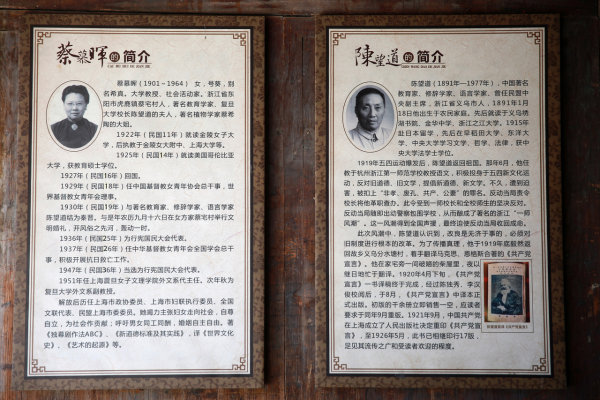 蔡慕暉的简介
CAI MU HUI DE JIAN JIE
蔡慕晖（1901～1964） 女，号葵，别
名希真。大学教授、社会活动家。浙江省东
阳市虎鹿镇蔡宅村人，著名教育学家、复旦
大学校长陈望道的夫人，著名植物学家蔡希
陶的大姐。
1922年（民国11年）就读金陵女子大
学，后执教于金陵女大附中、上海大学等。
1925年（民国14年）就读美国哥伦比亚
大学，获教育硕士学位。
1927年（民国16年）回国。
1929年（民国18年）任中国基督教女青年协会总干事，世
界基督教女青年会理事。
1930年（民国19年）与著名教育家、修辞学家、语言学家
陈望道结为秦晋。与是年农历九月十六日在女方家蔡宅村举行文
明婚礼，开风俗之先河，轰动一时。
1936年（民国25年）为行宪国民大会代表。
1937年（民国26年）任中华基督教女青年会全国学会总干
事，积极开展抗日救亡工作。
1947年（民国36年）当选为行宪国民大会代表。
1951年任上海震旦女子文理学院外文系代主任。次年秋为
复旦大学外文系副教授。
解放后历任上海市政协委员、上海市妇联执行委员、全国
文联代表、民盟上海市委委员。她竭力主张妇女走向社会，自尊
自立，为社会作贡献；呼吁男女同工同酬，婚姻自主自由。著
《独幕剧作法ABC》、《新道德标准及其实践》，译《世界文化
史》、《艺术的起源》等。
陳望道的简介
CHEN WANG DAO DE JIAN JIE
陈望道（1891年—1977年），中国著名
教育家、修辞学家、语言学家，曾任民盟中
央副主席，浙江省义乌市人，1891年1月
18日他出生于农民家庭。先后就读于义乌绣
湖书院、金华中学、浙江之江大学。1915年
赴日本留学，先后在早稻田大学、东洋大
学、中央大学学习文学、哲学、法律，获中
央大学法学士学位。
1919年五四运动爆发后，陈望道返回祖国。那年6月，他任
教于杭州浙江第一师范学校教授语文，积极投身于五四新文化运
动，反对旧道德、旧文学，提倡新道德、新文学。不久，遭到迫
害，被扣上“非孝、废孔、共产、公妻”的罪名。反动当局责令
校长将他革职查办。此令受到一师校长和全校师生的坚决反对。
反动当局随即出动警察包围学校，从而酿成了著名的浙江“一师
风潮”。这一风潮得到全国声援，最终迫使反动当局收回成命。
此次风潮中，陈望道认识到，改良是无济于事的，必须对
旧制度进行根本的改革。为了传播真理，他于1919年底毅然返
回故乡义乌分水塘村，着手翻译马克思、恩格斯合著的《共产党
宣言》。他在家宅旁一间破陋的柴屋里，夜以
继日地忙于翻译。1920年4月下旬，《共产党
宣言》一书译稿终于完成，经过陈独秀、李汉
俊校阅后，于8月，《共产党宣言》中译本正
式出版。初版的千余册立即销售一空，应读者
要求于同年9月重版。1921年9月，中国共产党
在上海成立了人民出版社决定重印《共产党宣
言》，至1926年5月，此书已相继印行17版，
足见其流传之广和受读者欢迎的程度。